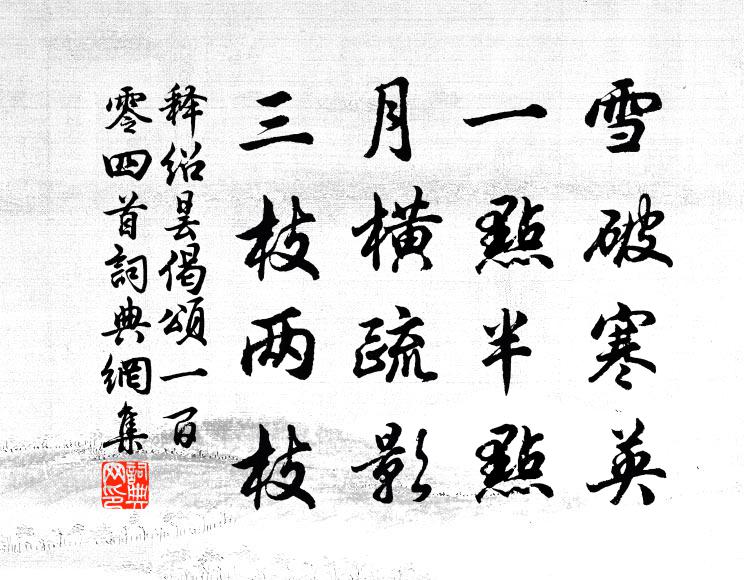 雪破寒英
一點半點
月橫疏影
三枝两枝
释绍昙偈頌一百
零四首詞典網集
詞典網印